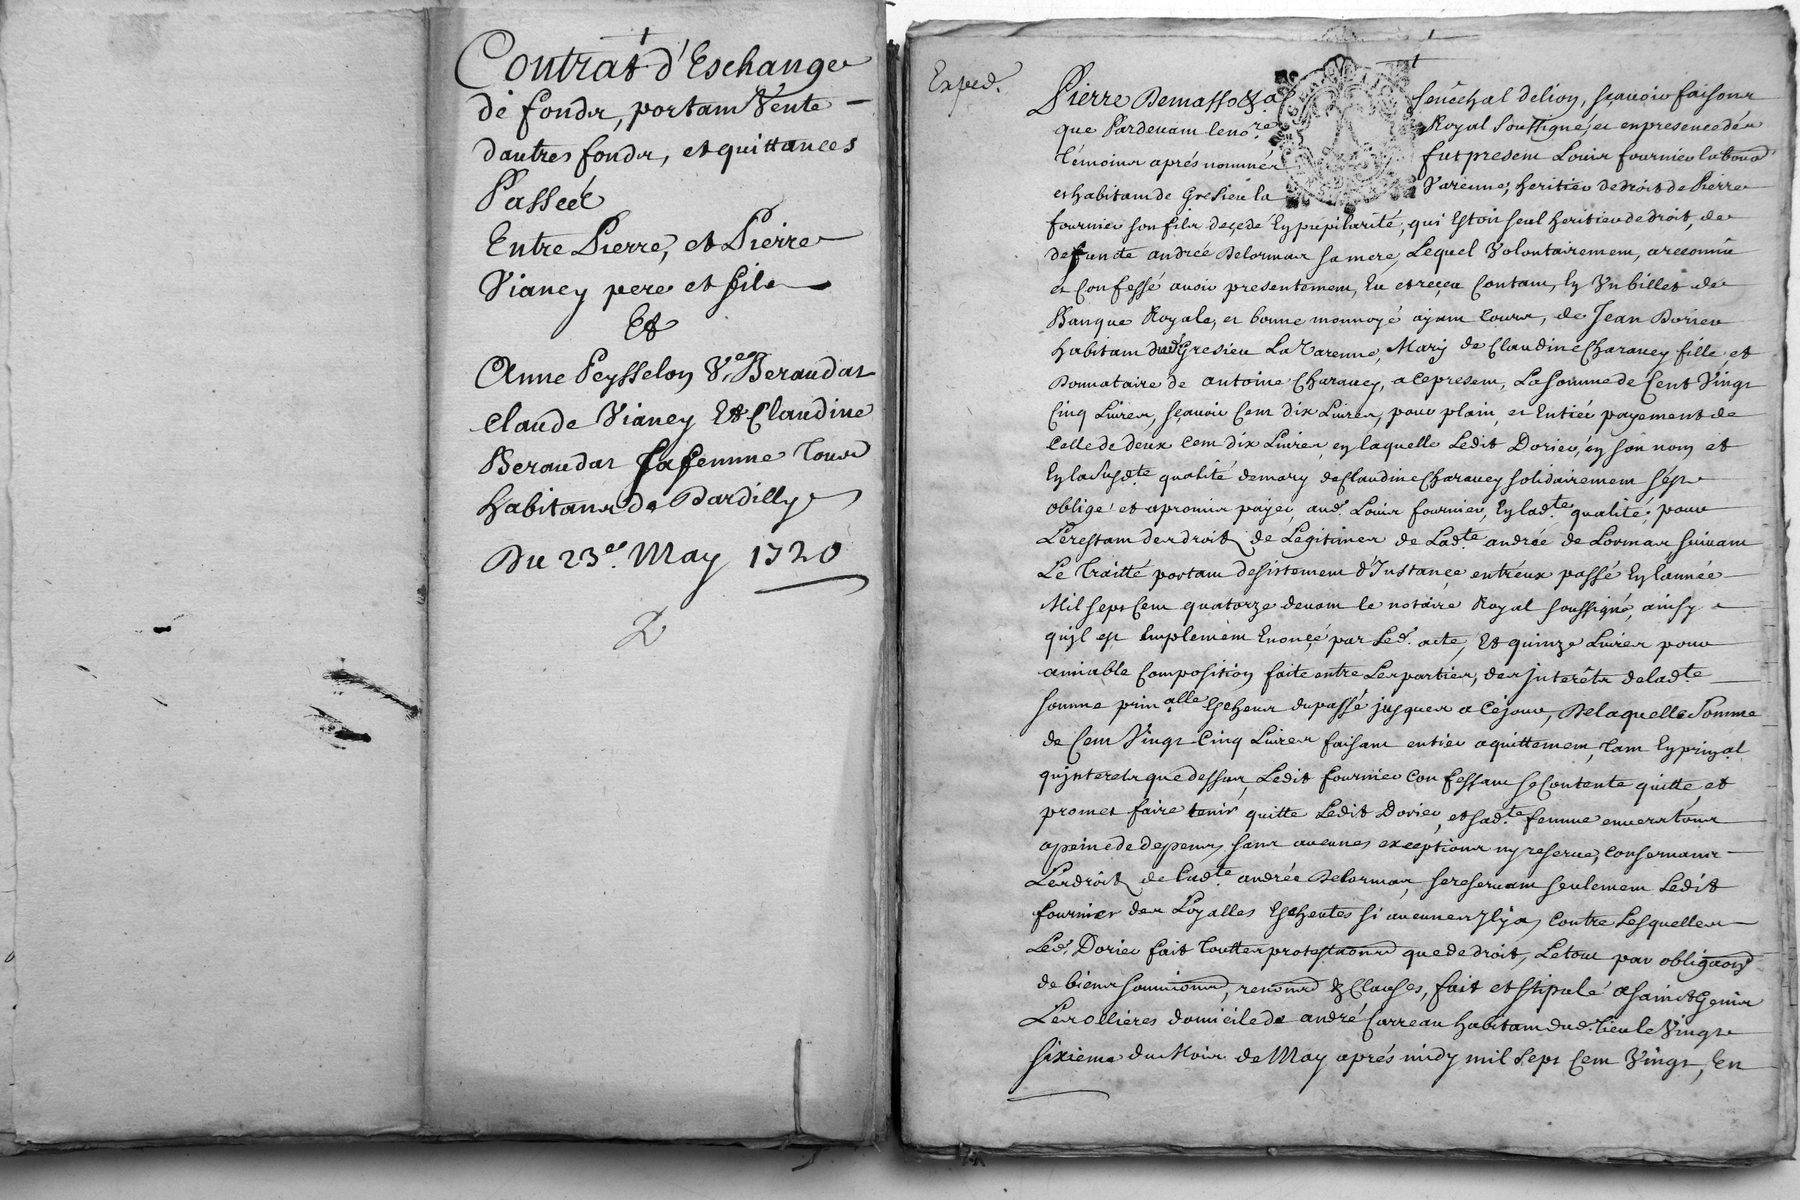 Contrat d'Eschange
de fondz, portant Vente
dautres fondz, et quittances
Passeé
Entre Pierre, et Pierre
Vianey pere et fils
Et
Anne Peysselon Vve Beraudat
Claude Vianey Et Claudine
Beraudat sa femme tous
habitans de Dardilly
Du 23e May 1720
2
Exped.
Pierre Demasso &a Senéchal delion, sçavoir faisons
que Pardevant le nore Royal soussigné, et enpresence des
témoins aprés nommés fut present Louis fournier labour
et habitant de Gresieu la Varenne, heritier de droit de Pierre
fournier son fils, deçedé En pupilarité, qui Estoit seul heritier de droit, de
defunte andrée Delormas sa mere, Lequel Volontairement, a reconnu
et Confessé avoir presentement, Eu et reçeu Contant, En Un billet de
Banque Royale, et bonne monnoye ayant Cours, de Jean Dorier
habitant dud. Gresieu La Varenne, Mary de Claudine Charavey fille et
Donnataire de antoine Charavey, a ce present, La somme de Cent Vingt
Cinq Livres, sçavoir Cent dix Livres, pour plain, et Entier payement de
Celle de deux cent dix Livres en laquelle Ledit Dorier, en son nom et
En la susdte qualité demary de Claudine Charavey solidairement s'est
obligé et a promis payer, aud. Louis fournier, En ladte qualité, pour
Le restant des droits de Legitimes de Ladte andrée de Lormas suivant
Le traitté portant desistement d'Instance entreux passé En lannée
Mil sept Cent quatorze devant le notaire Royal soussigné, ainsy
quil est Emplement Enonçé par Led. acte, Et quinze Livres pour
amiable Composition faite entre Les parties, des interêts deladte
somme prinalle Echeus du passé jusques a Cejour, De laquelle Somme
de Cent Vingt Cinq Livres faisant entier aquittement, tant En prinal
qu'interets que dessus, Ledit fournier Confessant se Contente quitte, et
promet faire tenir quitte Ledit Dorier, et sadte femme envers tous
apeine de depens, sans aucunes exceptions ny reserve, Consernant
Les droits de Ladte andrée Delormas, se reservant seulement Ledit
fournier des Loyalles Echeutes si aucunes Il y a, Contre Lesquelles
Led. Dorier fait touttes protestations que de droit, Le tout par obligation
de biens soumions, renons & Clauses, fait et stipulé a saint Genis
Les ollieres domicile de andré Carreau habitant dud. lieu le Vingt
sixieme du Mois de May aprés midy mil sept Cent Vingt, En